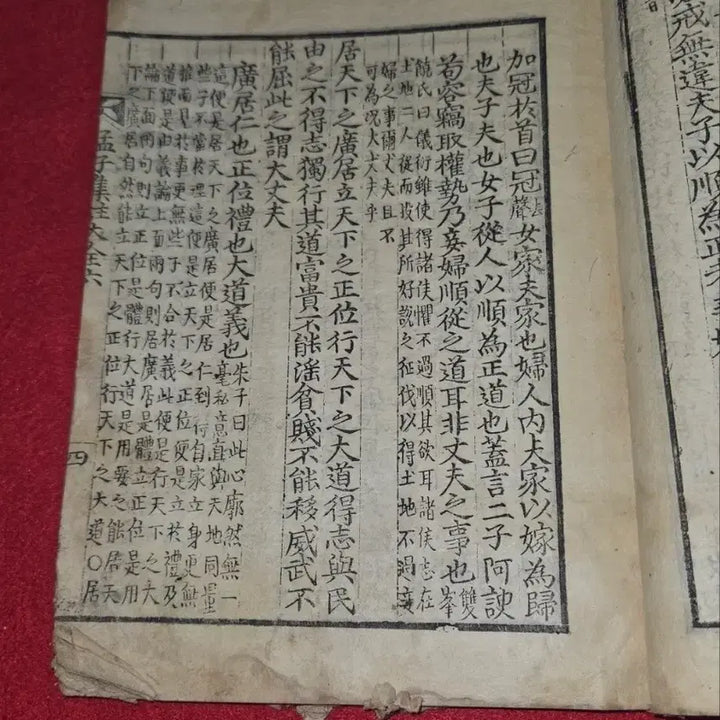 戒無違夫子以順為正者
加冠於首曰冠去聲女家夫家也婦人內夫家以嫁為歸
也夫子夫也女子從人以順為正道也蓋言二子阿諛
苟容竊取權勢乃妾婦順從之道耳非丈夫之事也雙峯
饒氏曰儀衍雖使得諸侯懼不過順其欲耳諸侯志在
土地二人從而投其所好說之征伐以得土地不過妾
婦之事爾丈夫且不
可為况大丈夫乎
居天下之廣居立天下之正位行天下之大道得志與民
由之不得志獨行其道富貴不能淫貧賤不能移威武不
能屈此之謂大丈夫
廣居仁也正位禮也大道義也朱子曰此心廓然無一
毫私意直與天地同量
這便是居天下之廣居便是居仁到行自家立身更無
些子不當於理這便是立天下之正位便是立於禮及
推而見於事更無些子不合於義此便是行天下之大
道便是由義論上面兩句則居廣居是體立正位是用
論下面兩句則立正位是體行大道是用要之能居天
下之廣居自然能立天下之正位行天下之大道○居
孟子集註大全六
四